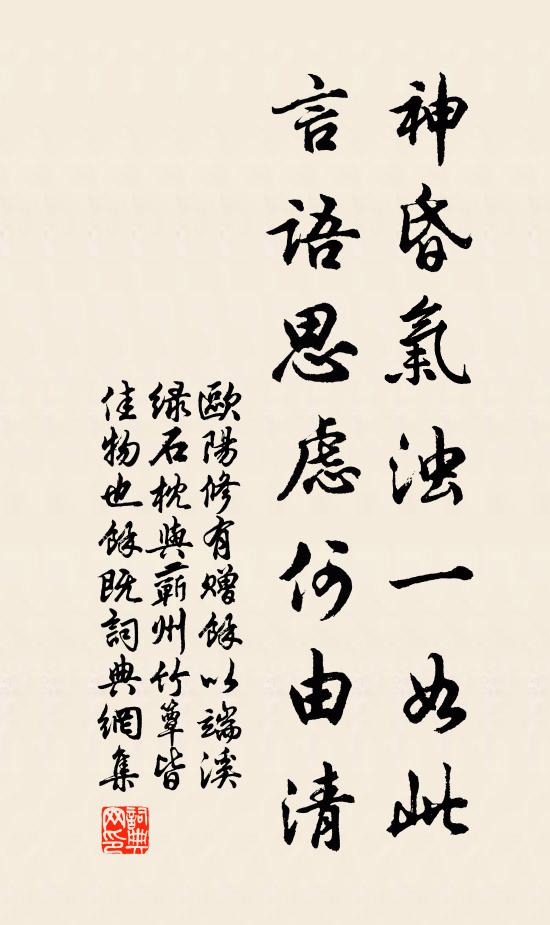 神昏氣濁一如此
言語思慮何由清
歐陽修有贈餘以端溪
綠石枕與蘄州竹簟皆
佳物也餘既詞典網集
詞典網印